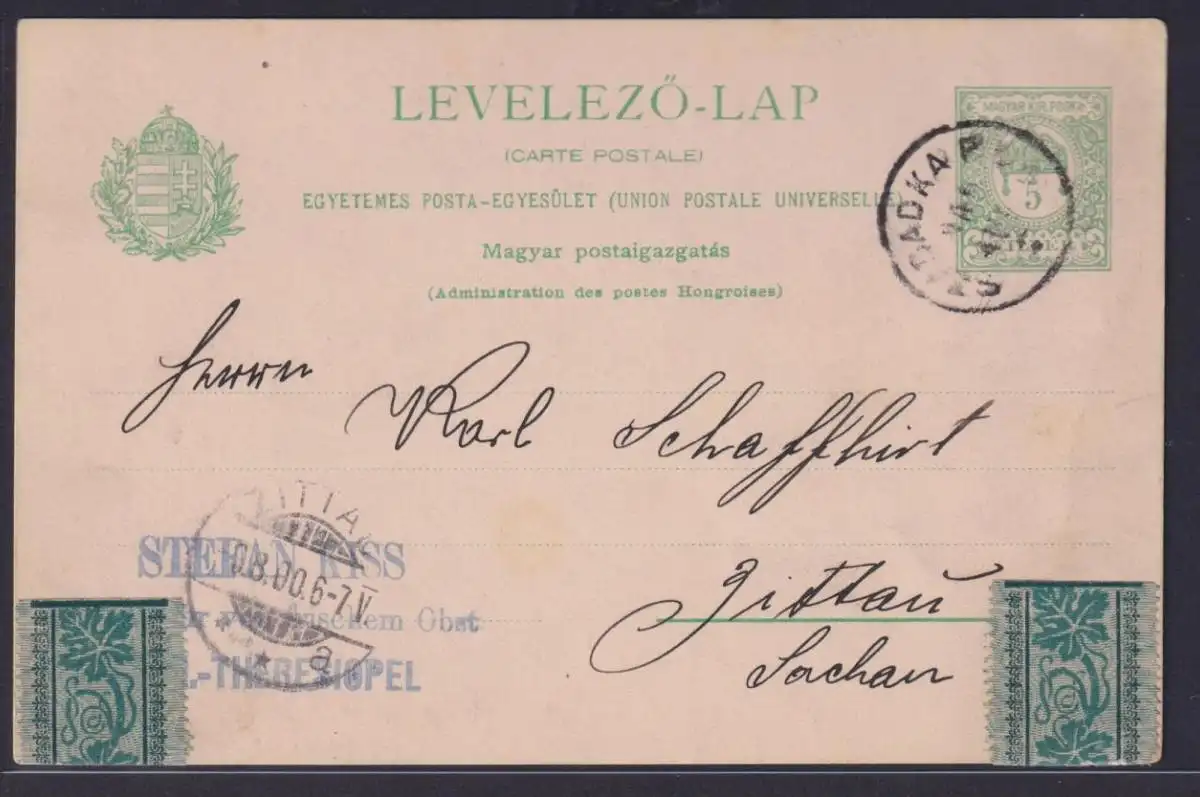 LEVELEZŐ-LAP
(CARTE POSTALE)
EGYETEMES POSTA-EGYESÜLET (UNION POSTALE UNIVERSELLE)
Magyar postaigazgatás
(Administration des postes Hongroises)
MAGYAR KIR. POSTA
5
SZABADKA
Herrn
Karl Schaffhirt
Zittau
Sachsen
ZITTAU
0.8.00.6-7.V
a
STEFAN KISS
Obst
-THERESIOPEL